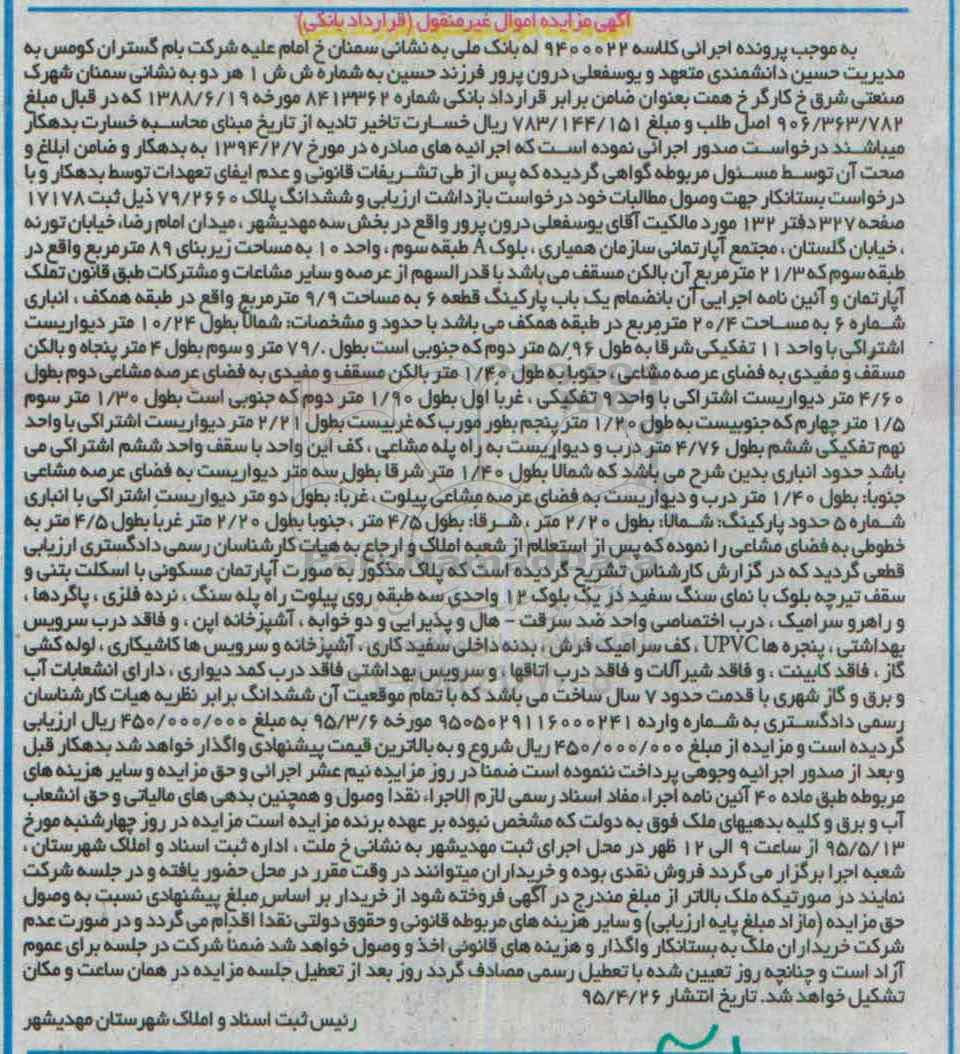 آگهی مزایده اموال غیرمنقول (قرارداد بانکی)
به موجب پرونده اجرائی کلاسه ۹۴۰۰۰۲۲ له بانک ملی به نشانی سمنان خ امام علیه شرکت بام گستران کومس به
مدیریت حسین دانشمندی متعهد و یوسفعلی درون پرور فرزند حسین به شماره ش ش ۱ هر دو به نشانی سمنان شهرک
صنعتی شرق خ کارگر خ همت بعنوان ضامن برابر قرارداد بانکی شماره ۸۴۱۳۳۶۲ مورخه ۱۳۸۸/۶/۱۹ که در قبال مبلغ
۹۰۶/۳۶۳/۷۸۲ اصل طلب و مبلغ ۷۸۳/۱۴۴/۱۵۱ ریال خسارت تاخیر تادیه از تاریخ مبنای محاسبه خسارت بدهکار
میباشند درخواست صدور اجرائی نموده است که اجرائیه های صادره در مورخ ۱۳۹۴/۲/۷ به بدهکار و ضامن ابلاغ و
صحت آن توسط مسئول مربوطه گواهی گردیده که پس از طی تشریفات قانونی و عدم ایفای تعهدات توسط بدهکار و با
درخواست بستانکار جهت وصول مطالبات خود درخواست بازداشت ارزیابی و ششدانگ پلاک ۷۹/۲۶۶۰ ذیل ثبت ۱۷۱۷۸
صفحه ۳۲۷ دفتر ۱۳۲ مورد مالکیت آقای یوسفعلی درون پرور واقع در بخش سه مهدیشهر ، میدان امام رضا، خیابان تورنه
، خیابان گلستان ، مجتمع آپارتمانی سازمان همیاری ، بلوک A طبقه سوم ، واحد ۱۰ به مساحت زیربنای ۸۹ مترمربع واقع در
طبقه سوم که ۲۱/۳ مترمربع آن بالکن مسقف می باشد با قدر السهم از عرصه و سایر مشاعات و مشترکات طبق قانون تملک
آپارتمان و آئین نامه اجرایی آن بانضمام یک باب پارکینگ قطعه ۶ به مساحت ۹/۹ مترمربع واقع در طبقه همکف ، انباری
شماره ۶ به مساحت ۲۰/۴ مترمربع در طبقه همکف می باشد با حدود و مشخصات: شمالا بطول ۱۰/۲۴ متر دیواریست
اشتراکی با واحد ۱۱ تفکیکی شرقا به طول ۵/۹۶ متر دوم که جنوبی است بطول ۷۹/۰ متر و سوم بطول ۴ متر پنجاه و بالکن
مسقف و مفیدی به فضای عرصه مشاعی ، جنوبا به طول ۱/۴۰ متر بالکن مسقف و مفیدی به فضای عرصه مشاعی دوم بطول
۴/۶۰ متر دیواریست اشتراکی با واحد ۹ تفکیکی ، غربا اول بطول ۱/۹۰ متر دوم که جنوبی است بطول ۱/۳۰ متر سوم
۱/۵ متر چهارم که جنوبیست به طول ۱/۲۰ متر پنجم بطور مورب که غربیست بطول ۲/۲۱ متر دیواریست اشتراکی با واحد
نهم تفکیکی ششم بطول ۴/۷۶ متر درب و دیواریست به راه پله مشاعی ، کف این واحد با سقف واحد ششم اشتراکی می
باشد حدود انباری بدین شرح می باشد که شمالا بطول ۱/۴۰ متر شرقا بطول سه متر دیواریست به فضای عرصه مشاعی
جنوبا: بطول ۱/۴۰ متر درب و دیواریست به فضای عرصه مشاعی پیلوت ، غربا: بطول دو متر دیواریست اشتراکی با انباری
شماره ۵ حدود پارکینگ: شمالا: بطول ۲/۲۰ متر ، شرقا: بطول ۴/۵ متر ، جنوبا بطول ۲/۲۰ متر غربا بطول ۴/۵ متر به
خطوطی به فضای مشاعی را نموده که پس از استعلام از شعبه املاک و ارجاع به هیات کارشناسان رسمی دادگستری ارزیابی
قطعی گردید که در گزارش کارشناس تشریح گردیده است که پلاک مذکور به صورت آپارتمان مسکونی با اسکلت بتنی و
سقف تیرچه بلوک با نمای سنگ سفید در یک بلوک ۱۲ واحدی سه طبقه روی پیلوت راه پله سنگ ، نرده فلزی ، پاگردها ،
و راهرو سرامیک ، درب اختصاصی واحد ضد سرقت - هال و پذیرایی و دو خوابه ، آشپزخانه اپن ، و فاقد درب سرویس
بهداشتی ، پنجره ها UPVC ، کف سرامیک فرش ، بدنه داخلی سفید کاری ، آشپزخانه و سرویس ها کاشیکاری ، لوله کشی
گاز ، فاقد کابینت ، و فاقد شیرآلات و فاقد درب اتاقها ، و سرویس بهداشتی فاقد درب کمد دیواری ، دارای انشعابات آب
و برق و گاز شهری با قدمت حدود ۷ سال ساخت می باشد که با تمام موقعیت آن ششدانگ برابر نظریه هیات کارشناسان
رسمی دادگستری به شماره وارده ۹۵۰۵۰۲۹۱۱۶۰۰۰۲۴۱ مورخه ۹۵/۳/۶ به مبلغ ۴۵۰/۰۰۰/۰۰۰ ریال ارزیابی
گردیده است و مزایده از مبلغ ۴۵۰/۰۰۰/۰۰۰ ریال شروع و به بالاترین قیمت پیشنهادی واگذار خواهد شد بدهکار قبل
و بعد از صدور اجرائیه وجوهی پرداخت ننموده است ضمنا در روز مزایده نیم عشر اجرائی و حق مزایده و سایر هزینه های
مربوطه طبق ماده ۴۰ آئین نامه اجرا، مفاد اسناد رسمی لازم الاجرا، نقدا وصول و همچنین بدهی های مالیاتی و حق انشعاب
آب و برق و کلیه بدهیهای ملک فوق به دولت که مشخص نبوده بر عهده برنده مزایده است مزایده در روز چهارشنبه مورخ
۹۵/۵/۱۳ از ساعت ۹ الی ۱۲ ظهر در محل اجرای ثبت مهدیشهر به نشانی خ ملت ، اداره ثبت اسناد و املاک شهرستان ،
شعبه اجرا برگزار می گردد فروش نقدی بوده و خریداران میتوانند در وقت مقرر در محل حضور یافته و در جلسه شرکت
نمایند در صورتیکه ملک بالاتر از مبلغ مندرج در آگهی فروخته شود از خریدار بر اساس مبلغ پیشنهادی نسبت به وصول
حق مزایده (مازاد مبلغ پایه ارزیابی) و سایر هزینه های مربوطه قانونی و حقوق دولتی نقدا اقدام می گردد و در صورت عدم
شرکت خریداران ملک به بستانکار واگذار و هزینه های قانونی اخذ و وصول خواهد شد ضمنا شرکت در جلسه برای عموم
آزاد است و چنانچه روز تعیین شده با تعطیل رسمی مصادف گردد روز بعد از تعطیل جلسه مزایده در همان ساعت و مکان
تشکیل خواهد شد. تاریخ انتشار ۹۵/۴/۲۶
رئیس ثبت اسناد و املاک شهرستان مهدیشهر